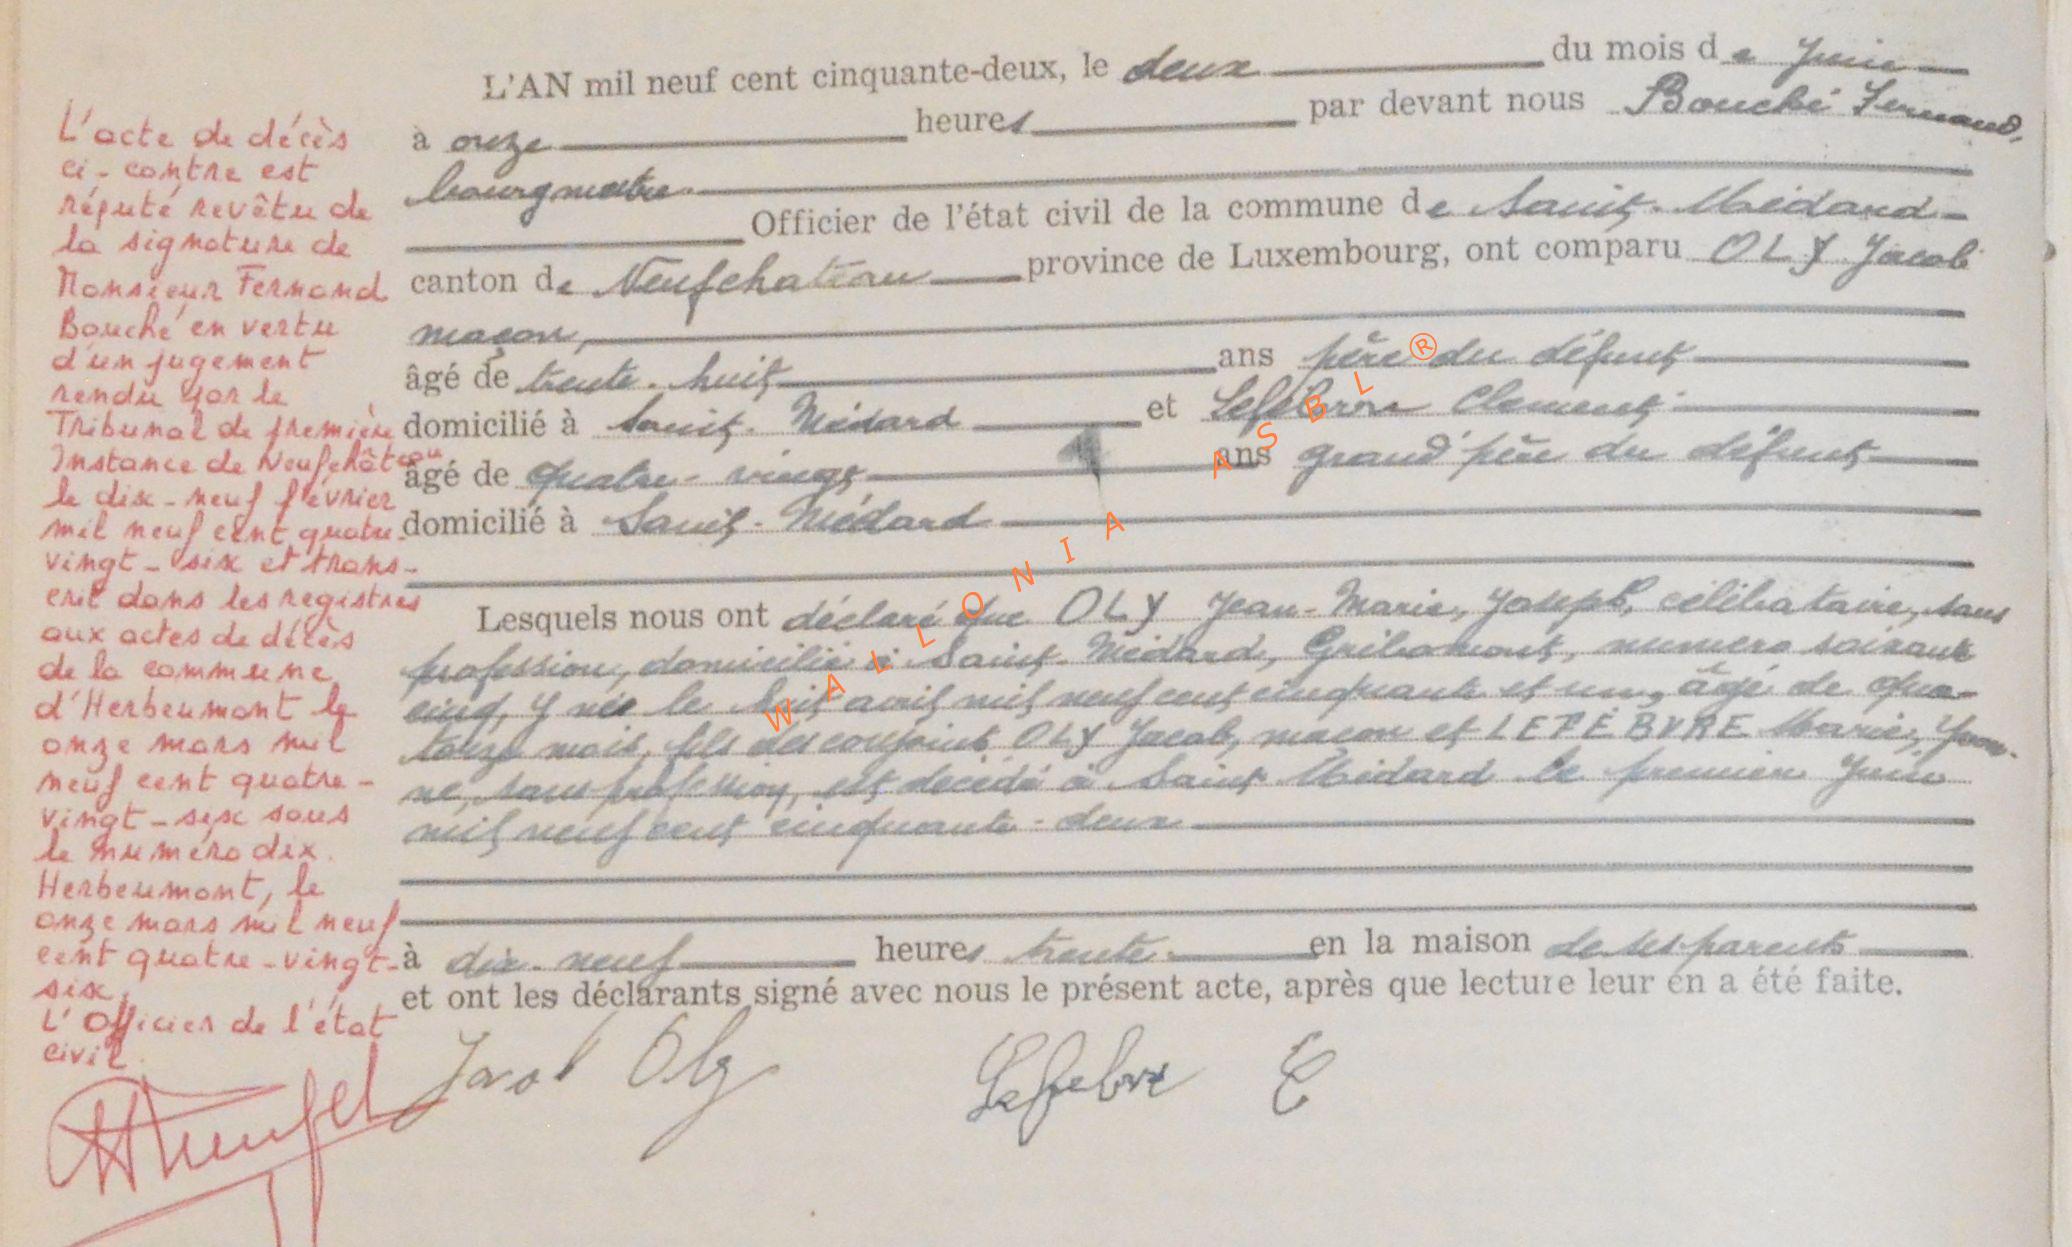 L'acte de décès
ci-contre est
réputé revêtu de
la signature de
Monsieur Fernand
Bouché en vertu
d'un jugement
rendu par le
Tribunal de première
Instance de Neufchâteau
le dix-neuf février
mil neuf cent quatre-
vingt-six et trans-
crit dans les registres
aux actes de décès
de la commune
d'Herbeumont le
onze mars mil
neuf cent quatre-
vingt-six sous
le numéro dix.
Herbeumont, le
onze mars mil neuf
cent quatre-vingt-
six.
L'Officier de l'état
civil
L'AN mil neuf cent cinquante-deux, le deux du mois de Juin
à onze heures par devant nous Bouché Fernand,
bourgmestre
Officier de l'état civil de la commune de Saint-Médard
canton de Neufchateau province de Luxembourg, ont comparu OLY Jacob
maçon,
âgé de trente-huit ans père du défunt
domicilié à Saint-Médard et Lefèbvre Clement
âgé de quatre-vingt ans grand'père du défunt
domicilié à Saint-Médard
Lesquels nous ont déclaré que OLY Jean-Marie, Joseph, célibataire, sans
profession, domicilié à Saint-Médard, Gribomont, numéro soixante
cinq, y né le huit avril mil neuf cent cinquante et un, âgé de qua-
torze mois, fils des conjoints OLY Jacob, maçon et LEFÈBVRE Marie, Yvon-
ne, sans profession, est décédé à Saint Médard le premier Juin
mil neuf cent cinquante-deux
à dix-neuf heures trente en la maison de ses parents
et ont les déclarants signé avec nous le présent acte, après que lecture leur en a été faite.
Jacob Oly Lefebvre C
WALLONIA ASBL ®